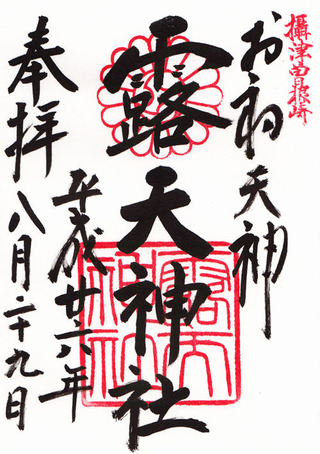 攝津曽根崎
お初天神
露天神社
平成廿六年
八月二十九日
奉拝
露天神社